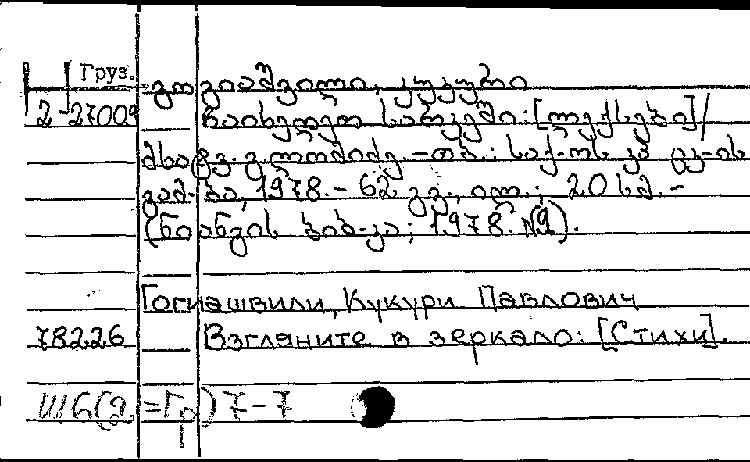 Груз.
გოგიაშვილი, კუკური
2-27009 ჩაიხედეთ სარკეში: [ლექსები]/
მხატვ. გ. ლომიძე. – თბ.: საქ. კპ ცკ-ის
გამ-ბა, 1978. – 62 გვ., ილ.; 20 სმ. –
(ნიანგის ბიბ-კა; 1978. №9).
Гогиашвили, Кукури Павлович
78226 Взгляните в зеркало: [Стихи].
Ш6(2=Гр)7-7